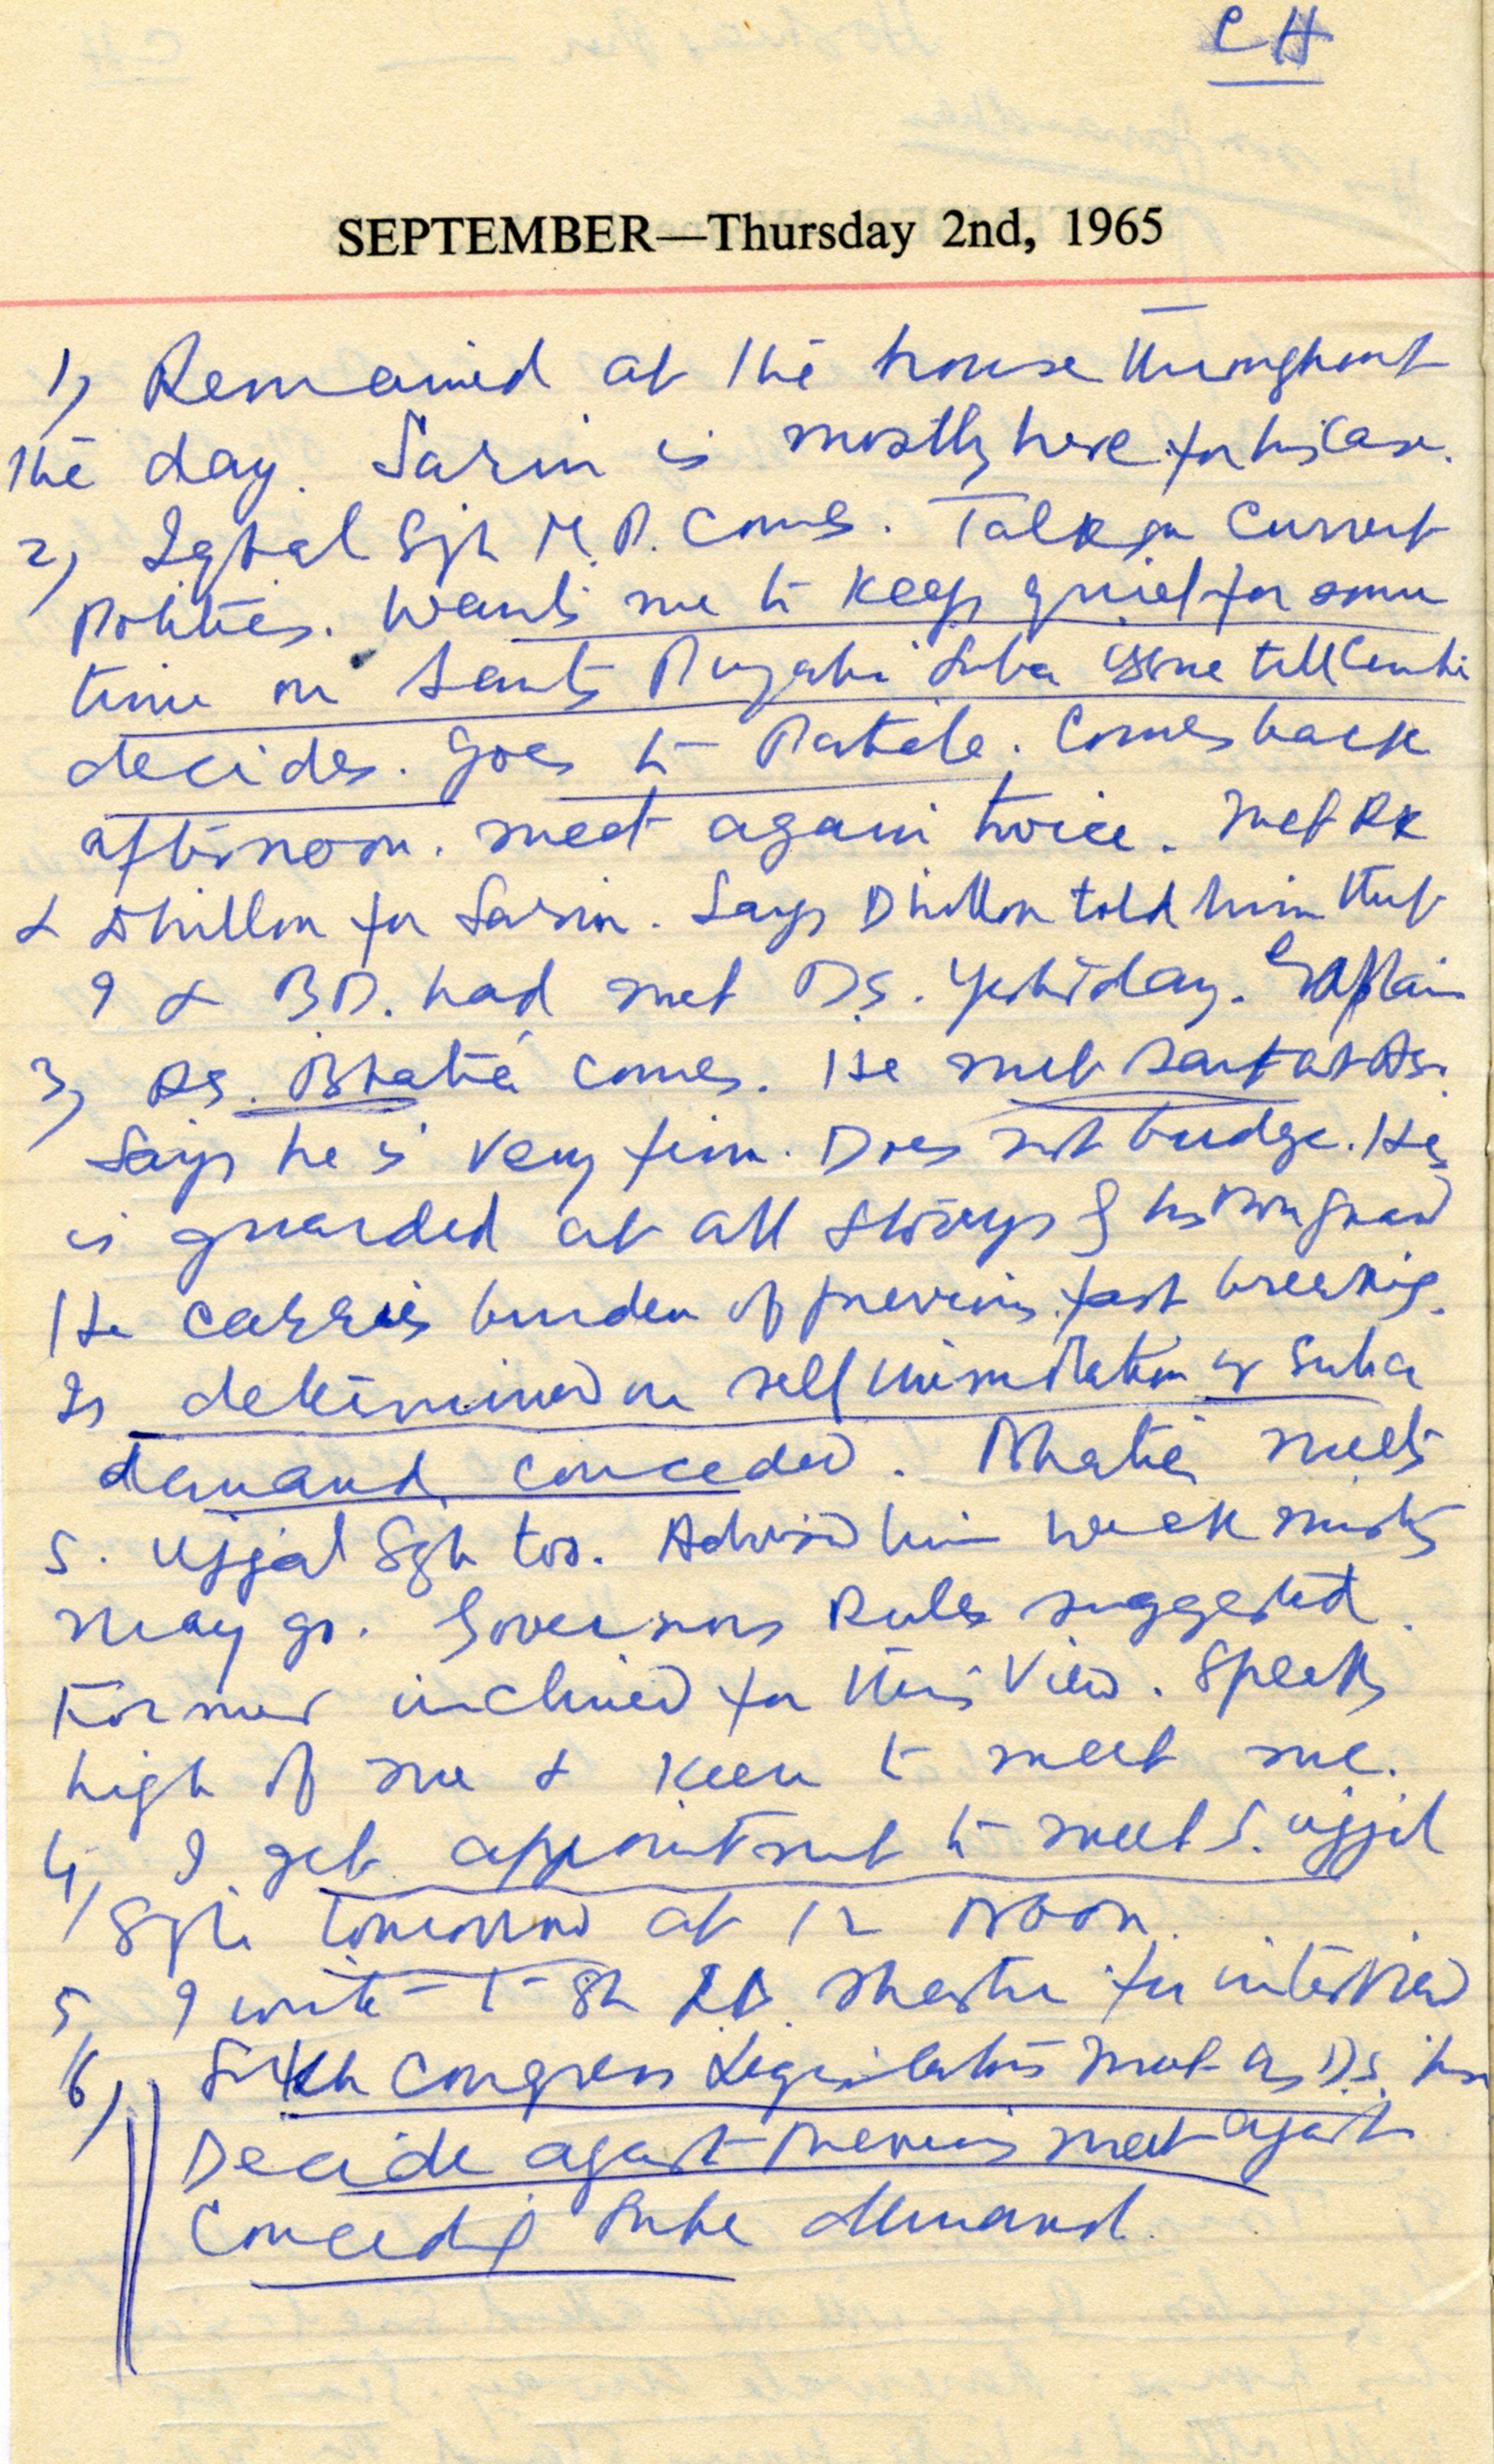 CH
SEPTEMBER—Thursday 2nd, 1965
1) Remained at the house throughout
the day. Sarin is mostly here for his case.
2) Iqbal Sgh M.P. comes. Talk on current
Politics. Wants me to keep quiet for some
time on Sants Punjabi Suba issue till Centre
decides. Goes to Patiala. Comes back
afternoon. meet again twice. Met RK
& Dhillon for Sarin. Says Dhillon told him that
I & BD. had met D.S. Yesterday. Explain
3) AS. Bhatia comes. He met Sant at Asr.
Says he is very firm. Does not budge. He
is guarded at all
He carries burden of previous fast breaking.
Is determined on self immolation or Suba
demand conceded. Bhatia meets
S. Ujjal Sgh too. Advised him weak ministry
may go. Governors Rules suggested.
Former inclined for this view. Speaks
high of me & keen to meet me.
4) I get appointment to meet S. Ujjal
Sgh tomorrow at 12 Noon.
5) I write to Sh L.B. Shastri for interview
6) Sikh Congress Legislators meet as D.S.
Decide against previous meet against
Conceding Suba demand.